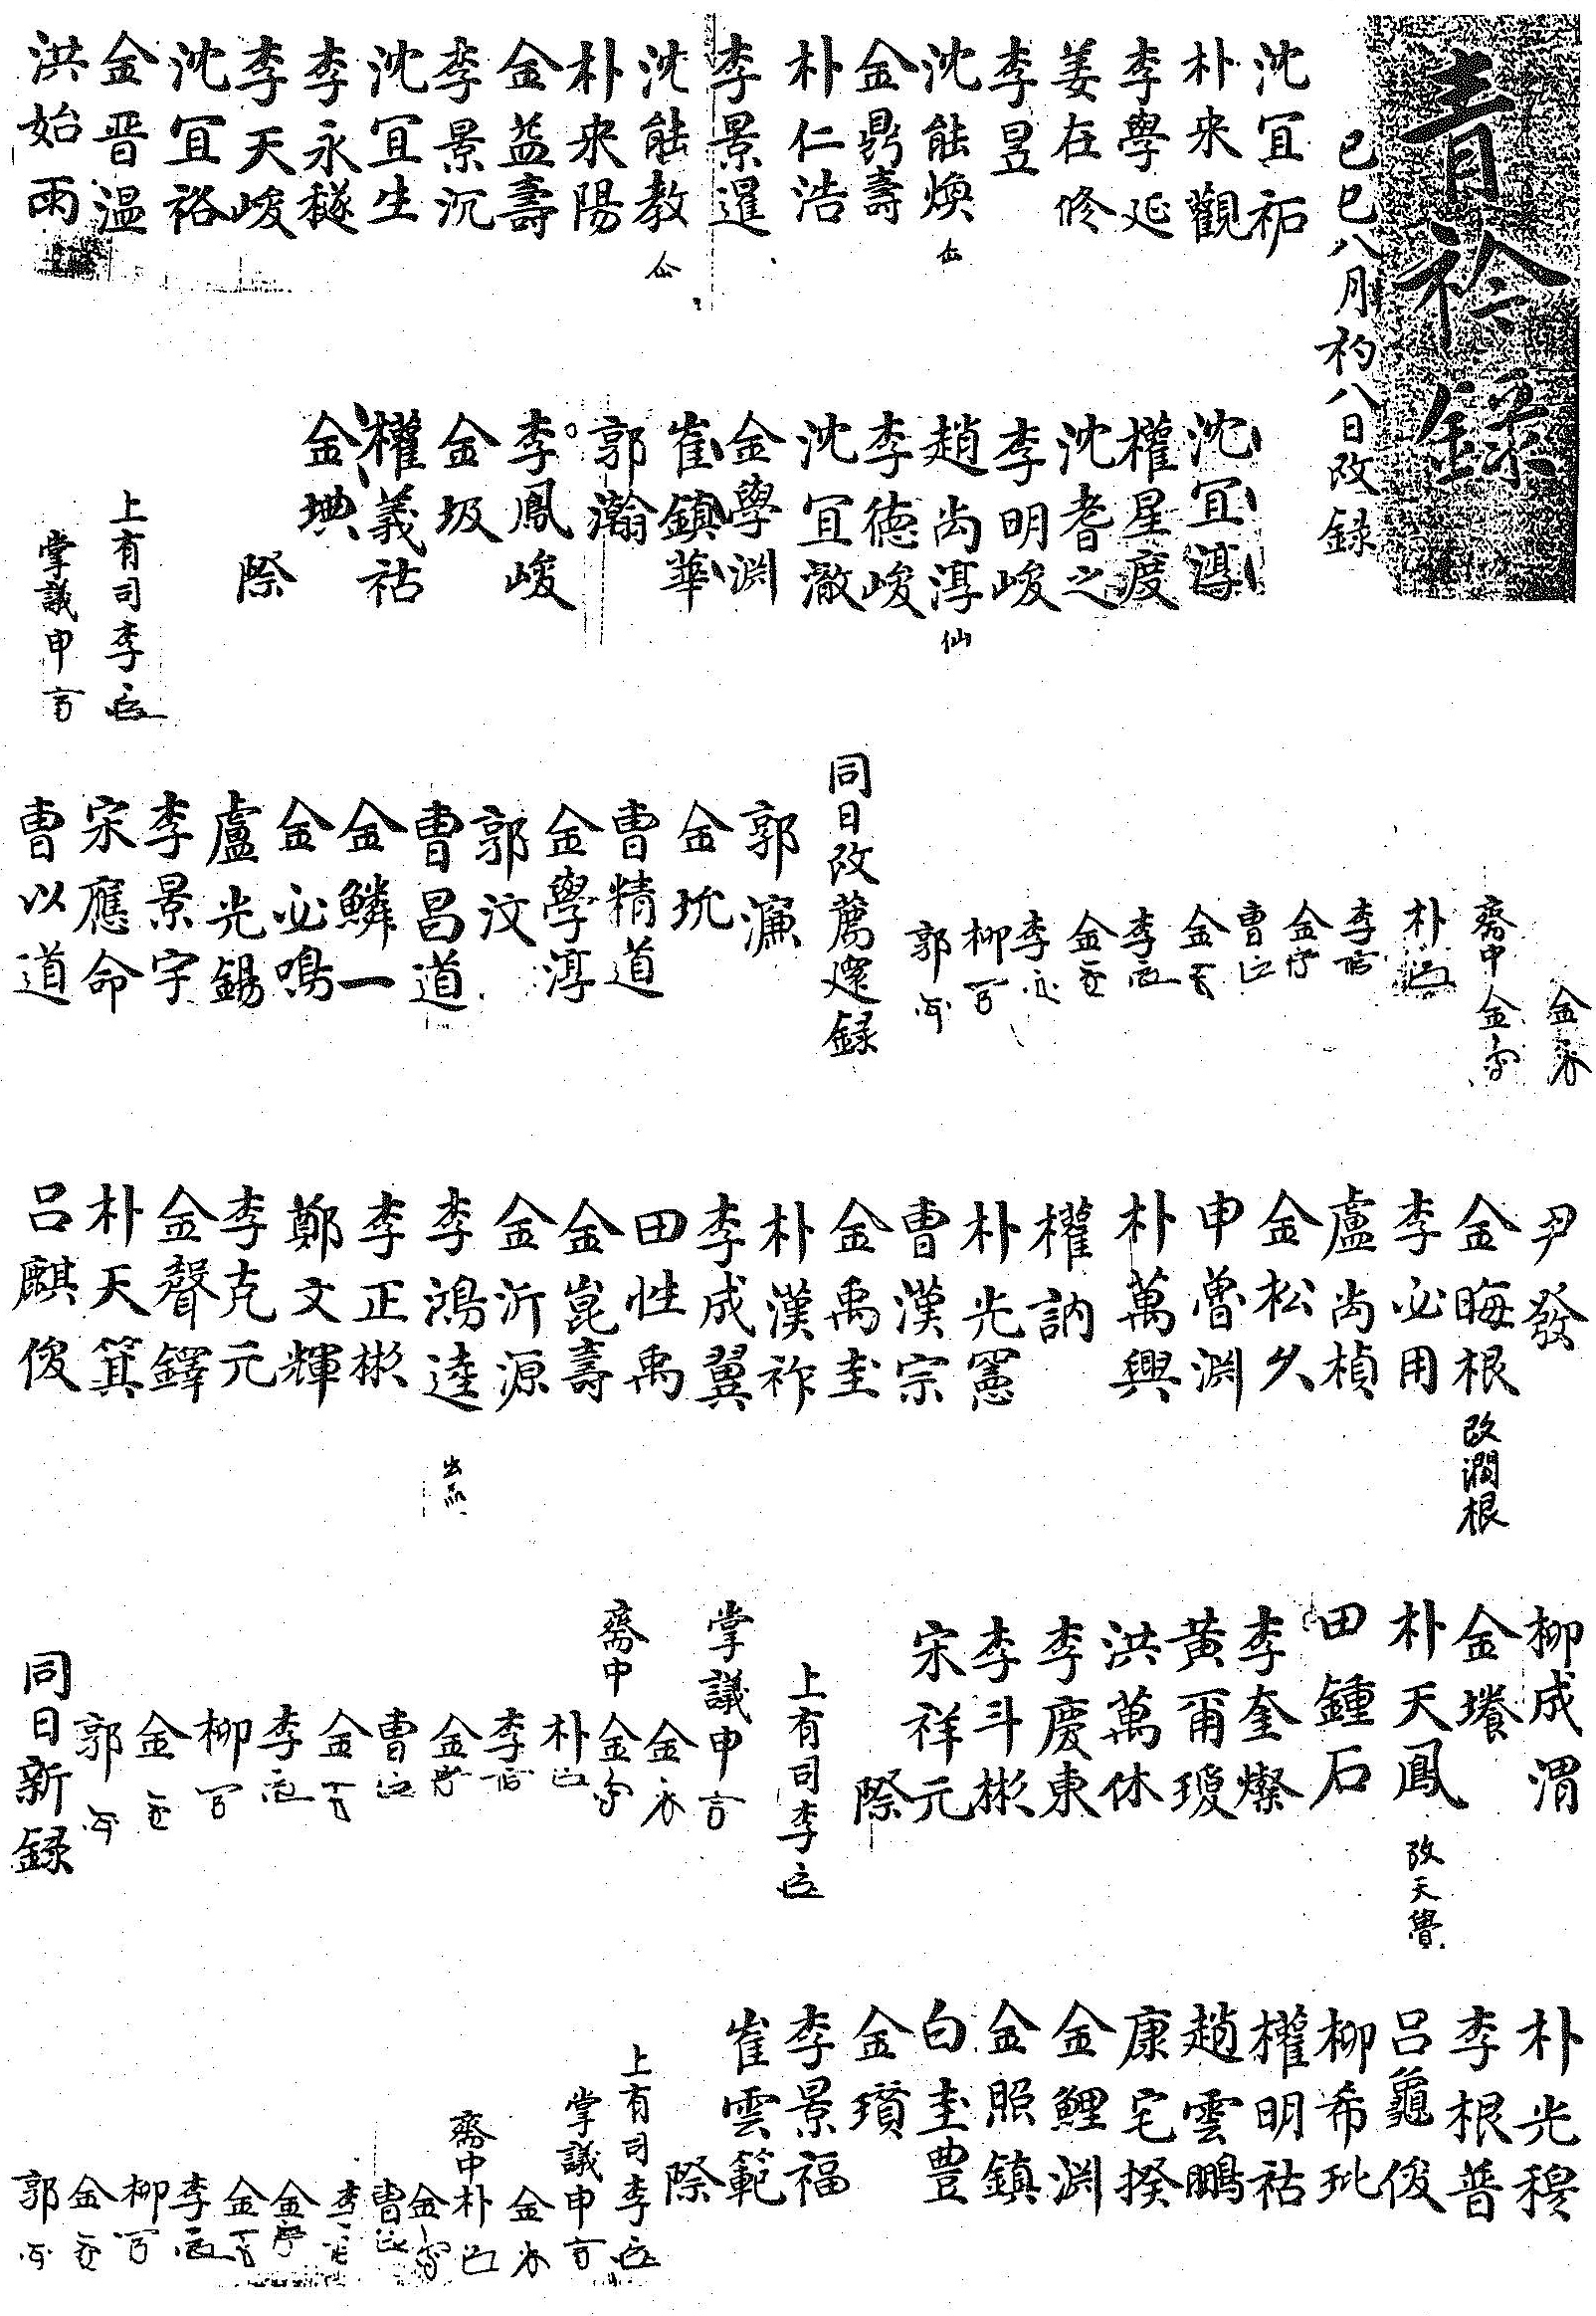 青衿錄
己巳八月初八日改録
沈宜祏
朴來觀
李學延
姜在修
李昱
沈能煥
金鼎壽
朴仁浩
李景暹
沈能敎
朴來陽
金益壽
李景沉
沈宜生
李永穟
李天峻
沈宜裕
金晋温
洪始雨
沈宜淳
權星度
沈耆之
李明峻
趙尚淳 仙
李德峻
沈宜澈
金學渊
崔鎮華
郭瀚
李鳳峻
金圾
權義祜
金㙉
際
上有司李
掌議申
金
齋中金
朴
李
金
曺
金
李
金
李
柳
郭
同日改薦還録
郭濂
金坑
曺精道
金學淳
郭汶
曺昌道
金鱗一
金必鳴
盧光錫
李景宇
宋應命
曺以道
尹發
金晦根 改潤根
李必用
盧尚楨
金松久
申魯渊
朴萬興
權訥
朴光憲
曺漢宗
金禹圭
朴漢祚
李成翼
田性禹
金崑壽
金沂源
李鴻逵
李正彬
鄭文輝
李克元
金聲鐸
朴天箕
呂麒俊
柳成渭
金墦
朴天鳳 改天
田鍾石
李奎燦
黃甭瓊
洪萬休
李慶東
李斗彬
宋祥元
際
上有司李
掌議申
金
齋中金
朴
李
金
曺
金
李
柳
金
郭
同日新録
朴光穆
李根普
呂龜俊
柳希玭
權明祜
趙雲鵬
康宅揆
金鯉渊
金照鎮
白圭豊
金瓚
李景福
崔雲範
際
上有司李
掌議申
金
齋中朴
金
曺
李
金
金
李
柳
金
郭